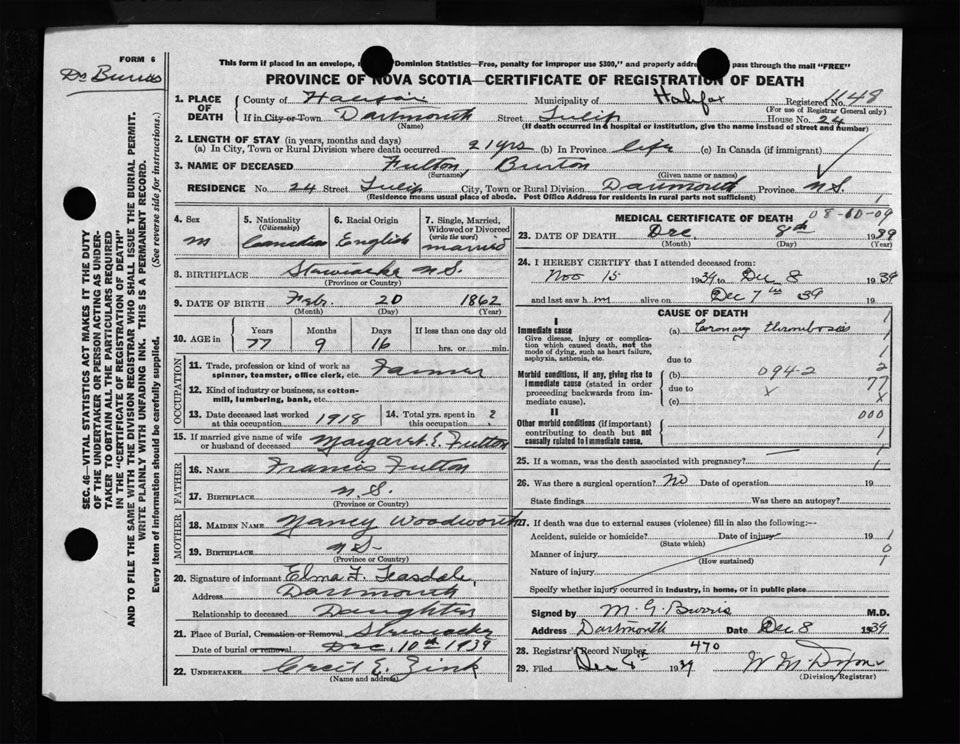 FORM 6
Dr Burris
This form if placed in an envelope, "Dominion Statistics—Free, penalty for improper use $300," and properly pass through the mail "FREE"
PROVINCE OF NOVA SCOTIA—CERTIFICATE OF REGISTRATION OF DEATH
1. PLACE OF DEATH
County of Halifax Municipality of Halifax Registered No. 1148
(For use of Registrar General only)
If in City or Town Dartmouth Street Tulip House No. 24
(Name) (If death occurred in a hospital or institution, give the name instead of street and number)
2. LENGTH OF STAY (in years, months and days)
(a) In City, Town or Rural Division where death occurred 21 yrs (b) In Province life (c) In Canada (if immigrant)
3. NAME OF DECEASED Fulton, Burton
(Surname) (Given name or names)
RESIDENCE No. 24 Street Tulip City, Town or Rural Division Dartmouth Province N.S.
(Residence means usual place of abode. Post Office Address for residents in rural parts not sufficient)
1
4. Sex
m
5. Nationality
(Citizenship)
Canadian
6. Racial Origin
English
7. Single, Married, Widowed or Divorced
(write the word)
married
8. BIRTHPLACE Stewiacke N.S.
(Province or Country)
9. DATE OF BIRTH Feb. 20 1862
(Month) (Day) (Year)
10. AGE in
Years Months Days If less than one day old
77 9 16 hrs. or min.
OCCUPATION
11. Trade, profession or kind of work as
spinner, teamster, office clerk, etc. Farmer
12. Kind of industry or business, as cotton-
mill, lumbering, bank, etc.
13. Date deceased last worked
at this occupation 1918
14. Total yrs. spent in
this occupation ?
15. If married give name of wife
or husband of deceased Margaret E. Fulton
FATHER
16. NAME Francis Fulton
17. BIRTHPLACE N.S.
(Province or Country)
MOTHER
18. MAIDEN NAME Nancy Woodworth
19. BIRTHPLACE N.S.
(Province or Country)
20. Signature of informant Elma F. Teasdale,
Address Dartmouth
Relationship to deceased Daughter
21. Place of Burial, Cremation or Removal Stewiacke
Date of burial or removal Dec. 10th 1939
22. UNDERTAKER Cecil E. Zink
(Name and address)
MEDICAL CERTIFICATE OF DEATH
08-60-09
23. DATE OF DEATH Dec 8th 1939
(Month) (Day) (Year)
24. I HEREBY CERTIFY that I attended deceased from:
Nov 15 1939 to Dec 8 1939
and last saw h m alive on Dec 7th 39 19
CAUSE OF DEATH
I
Immediate cause
Give disease, injury or complica-
tion which caused death, not the
mode of dying, such as heart failure,
asphyxia, asthenia, etc.
(a) Coronary thrombosis
due to
Morbid conditions, if any, giving rise to
immediate cause (stated in order
proceeding backwards from im-
mediate cause).
(b) 094-2
due to x
(c) x
II
Other morbid conditions (if important)
contributing to death but not
causally related to immediate cause.
1
1
1
2
77
000
1
1
25. If a woman, was the death associated with pregnancy?
26. Was there a surgical operation? No Date of operation 19
State findings Was there an autopsy?
27. If death was due to external causes (violence) fill in also the following:—
Accident, suicide or homicide? Date of injury 19
(State which)
Manner of injury
(How sustained)
Nature of injury
Specify whether injury occurred in industry, in home, or in public place
1
0
1
Signed by M. G. Burris M.D.
Address Dartmouth Date Dec 8 1939
28. Registrar's Record Number 470
29. Filed Dec 1939
(Division Registrar)
SEC. 46—VITAL STATISTICS ACT MAKES IT THE DUTY
OF THE UNDERTAKER OR PERSON ACTING AS UNDER-
TAKER TO OBTAIN ALL THE PARTICULARS REQUIRED
IN THE "CERTIFICATE OF REGISTRATION OF DEATH"
AND TO FILE THE SAME WITH THE DIVISION REGISTRAR WHO SHALL ISSUE THE BURIAL PERMIT.
WRITE PLAINLY WITH UNFADING INK. THIS IS A PERMANENT RECORD.
Every item of information should be carefully supplied. (See reverse side for instructions.)